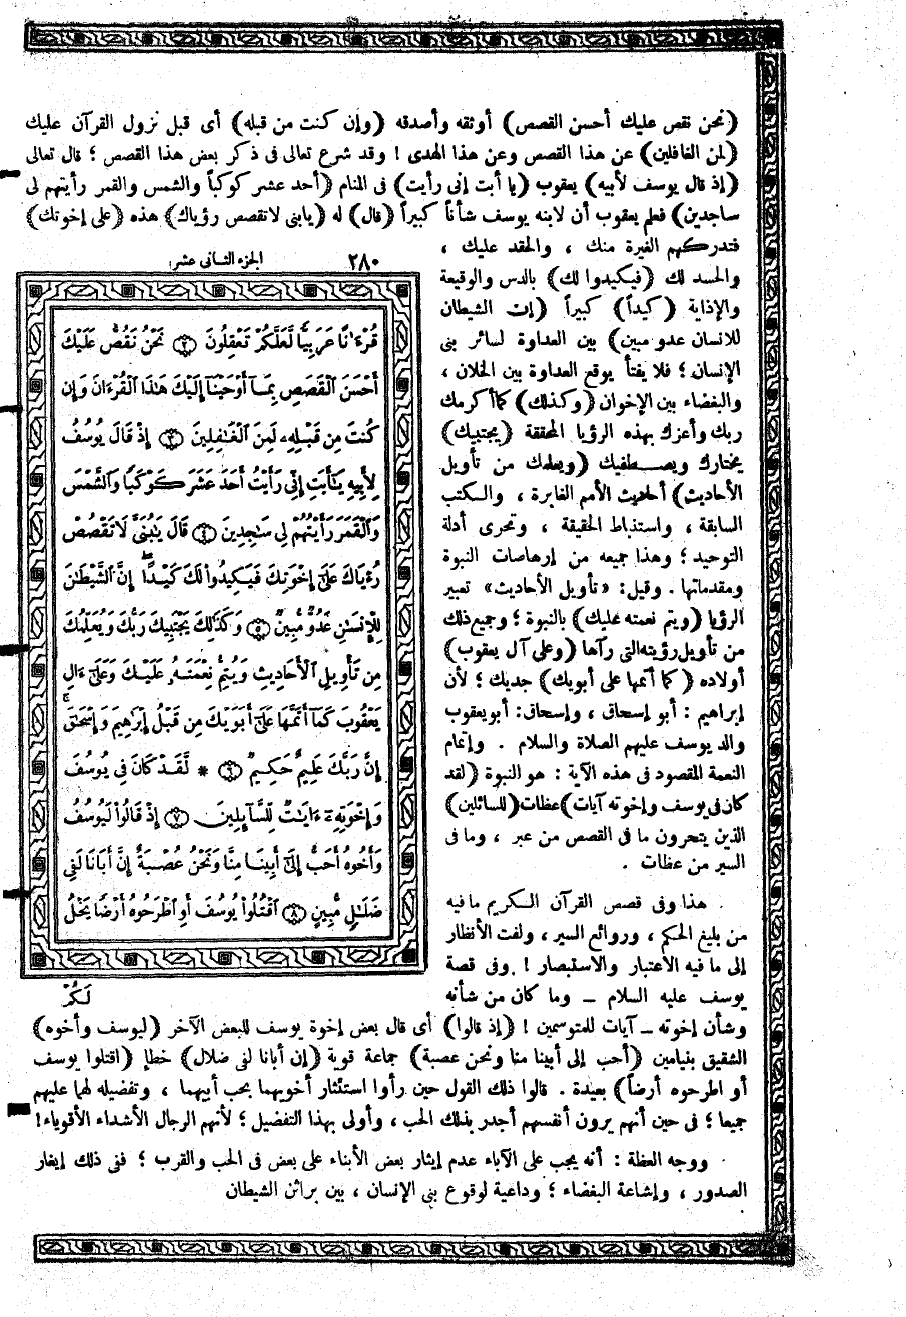 (نحن نقص عليك أحسن القصص) أوثقه وأصدقه (وإن كنت من قبله) أى قبل نزول القرآن عليك
(لمن الغافلين) عن هذا القصص وعن هذا الهدى ! وقد شرع تعالى فى ذكر بعض هذا القصص ؛ قال تعالى
(إذ قال يوسف لأبيه) يعقوب (يا أبت إنى رأيت) فى المنام (أحد عشر كوكباً والشمس والقمر رأيتهم لى
ساجدين) فعلم يعقوب أن لابنه يوسف شأناً كبيراً (قال) له (يابنى لا تقصص رؤياك) هذه (على إخوتك)
فتدركهم الغيرة منك ، والحقد عليك ،
والحسد لك (فيكيدوا لك) بالدس والوقيعة
والإذاية (كيداً) كبيراً (إن الشيطان
للانسان عدو مبين) بين العداوة لسائر بنى
الإنسان ؛ فلا يفتأ يوقع العداوة بين الخلان ،
والبغضاء بين الإخوان (وكذلك) كما أكرمك
ربك وأعزك بهذه الرؤيا المحققة (يجتبيك)
يختارك ويصطفيك (ويعلمك من تأويل
الأحاديث) أحاديث الأمم الغابرة ، والكتب
السابقة ، واستنباط الحقيقة ، وتحرى أدلة
التوحيد ؛ وهذا جميعه من إرهاصات النبوة
ومقدماتها . وقيل: «تأويل الأحاديث» تعبير
الرؤيا (ويتم نعمته عليك) بالنبوة ؛ وجميع ذلك
من تأويل رؤيته التى رآها (وعلى آل يعقوب)
أولاده (كما أتمها على أبويك) جديك ؛ لأن
إبراهيم : أبو إسحاق ، وإسحاق: أبو يعقوب
والد يوسف عليهم الصلاة والسلام . وإتمام
النعمة المقصود فى هذه الآية : هو النبوة (لقد
كان فى يوسف وإخوته آيات) عظات (للسائلين)
الذين يتحرون ما فى القصص من عبر ، وما فى
السير من عظات .
هذا وفى قصص القرآن الكريم ما فيه
من بليغ الحكم ، وروائع السير ، ولفت الأنظار
إلى ما فيه الاعتبار والاستبصار ! وفى قصة
يوسف عليه السلام – وما كان من شأنه
وشأن إخوته – آيات للمتوسمين ! (إذ قالوا) أى قال بعض إخوة يوسف للبعض الآخر (ليوسف وأخوه)
الشقيق بنيامين (أحب إلى أبينا منا ونحن عصبة) جماعة قوية (إن أبانا لفى ضلال) خطإ (اقتلوا يوسف
أو اطرحوه أرضاً) بعيدة . قالوا ذلك القول حين رأوا استئثار أخويهما بحب أبيهما ، وتفضيله لهما عليهم
جميعا ؛ فى حين أنهم يرون أنفسهم أجدر بذلك الحب ، وأولى بهذا التفضيل ؛ لأنهم الرجال الأشداء الأقوياء!
ووجه العظة : أنه يجب على الآباء عدم إيثار بعض الأبناء على بعض فى الحب والقرب ؛ ففى ذلك إيغار
الصدور ، وإشاعة البغضاء ؛ وداعية لوقوع بنى الإنسان ، بين براثن الشيطان
٢٨٠ الجزء الثانى عشر
قُرْءَٰنًا عَرَبِيًّا لَّعَلَّكُمْ تَعْقِلُونَ ٢ نَحْنُ نَقُصُّ عَلَيْكَ
أَحْسَنَ ٱلْقَصَصِ بِمَآ أَوْحَيْنَآ إِلَيْكَ هَٰذَا ٱلْقُرْءَانَ وَإِن
كُنتَ مِن قَبْلِهِۦ لَمِنَ ٱلْغَٰفِلِينَ ٣ إِذْ قَالَ يُوسُفُ
لِأَبِيهِ يَٰٓأَبَتِ إِنِّى رَأَيْتُ أَحَدَ عَشَرَ كَوْكَبًا وَٱلشَّمْسَ
وَٱلْقَمَرَ رَأَيْتُهُمْ لِى سَٰجِدِينَ ٤ قَالَ يَٰبُنَىَّ لَا تَقْصُصْ
رُءْيَاكَ عَلَىٰٓ إِخْوَتِكَ فَيَكِيدُوا۟ لَكَ كَيْدًا ۖ إِنَّ ٱلشَّيْطَٰنَ
لِلْإِنسَٰنِ عَدُوٌّ مُّبِينٌ ٥ وَكَذَٰلِكَ يَجْتَبِيكَ رَبُّكَ وَيُعَلِّمُكَ
مِن تَأْوِيلِ ٱلْأَحَادِيثِ وَيُتِمُّ نِعْمَتَهُۥ عَلَيْكَ وَعَلَىٰٓ ءَالِ
يَعْقُوبَ كَمَآ أَتَمَّهَا عَلَىٰٓ أَبَوَيْكَ مِن قَبْلُ إِبْرَٰهِيمَ وَإِسْحَٰقَ ۚ
إِنَّ رَبَّكَ عَلِيمٌ حَكِيمٌ ٦ * لَّقَدْ كَانَ فِى يُوسُفَ
وَإِخْوَتِهِۦٓ ءَايَٰتٌ لِّلسَّآئِلِينَ ٧ إِذْ قَالُوا۟ لَيُوسُفُ
وَأَخُوهُ أَحَبُّ إِلَىٰٓ أَبِينَا مِنَّا وَنَحْنُ عُصْبَةٌ إِنَّ أَبَانَا لَفِى
ضَلَٰلٍ مُّبِينٍ ٨ ٱقْتُلُوا۟ يُوسُفَ أَوِ ٱطْرَحُوهُ أَرْضًا يَخْلُ
لَكُمْ